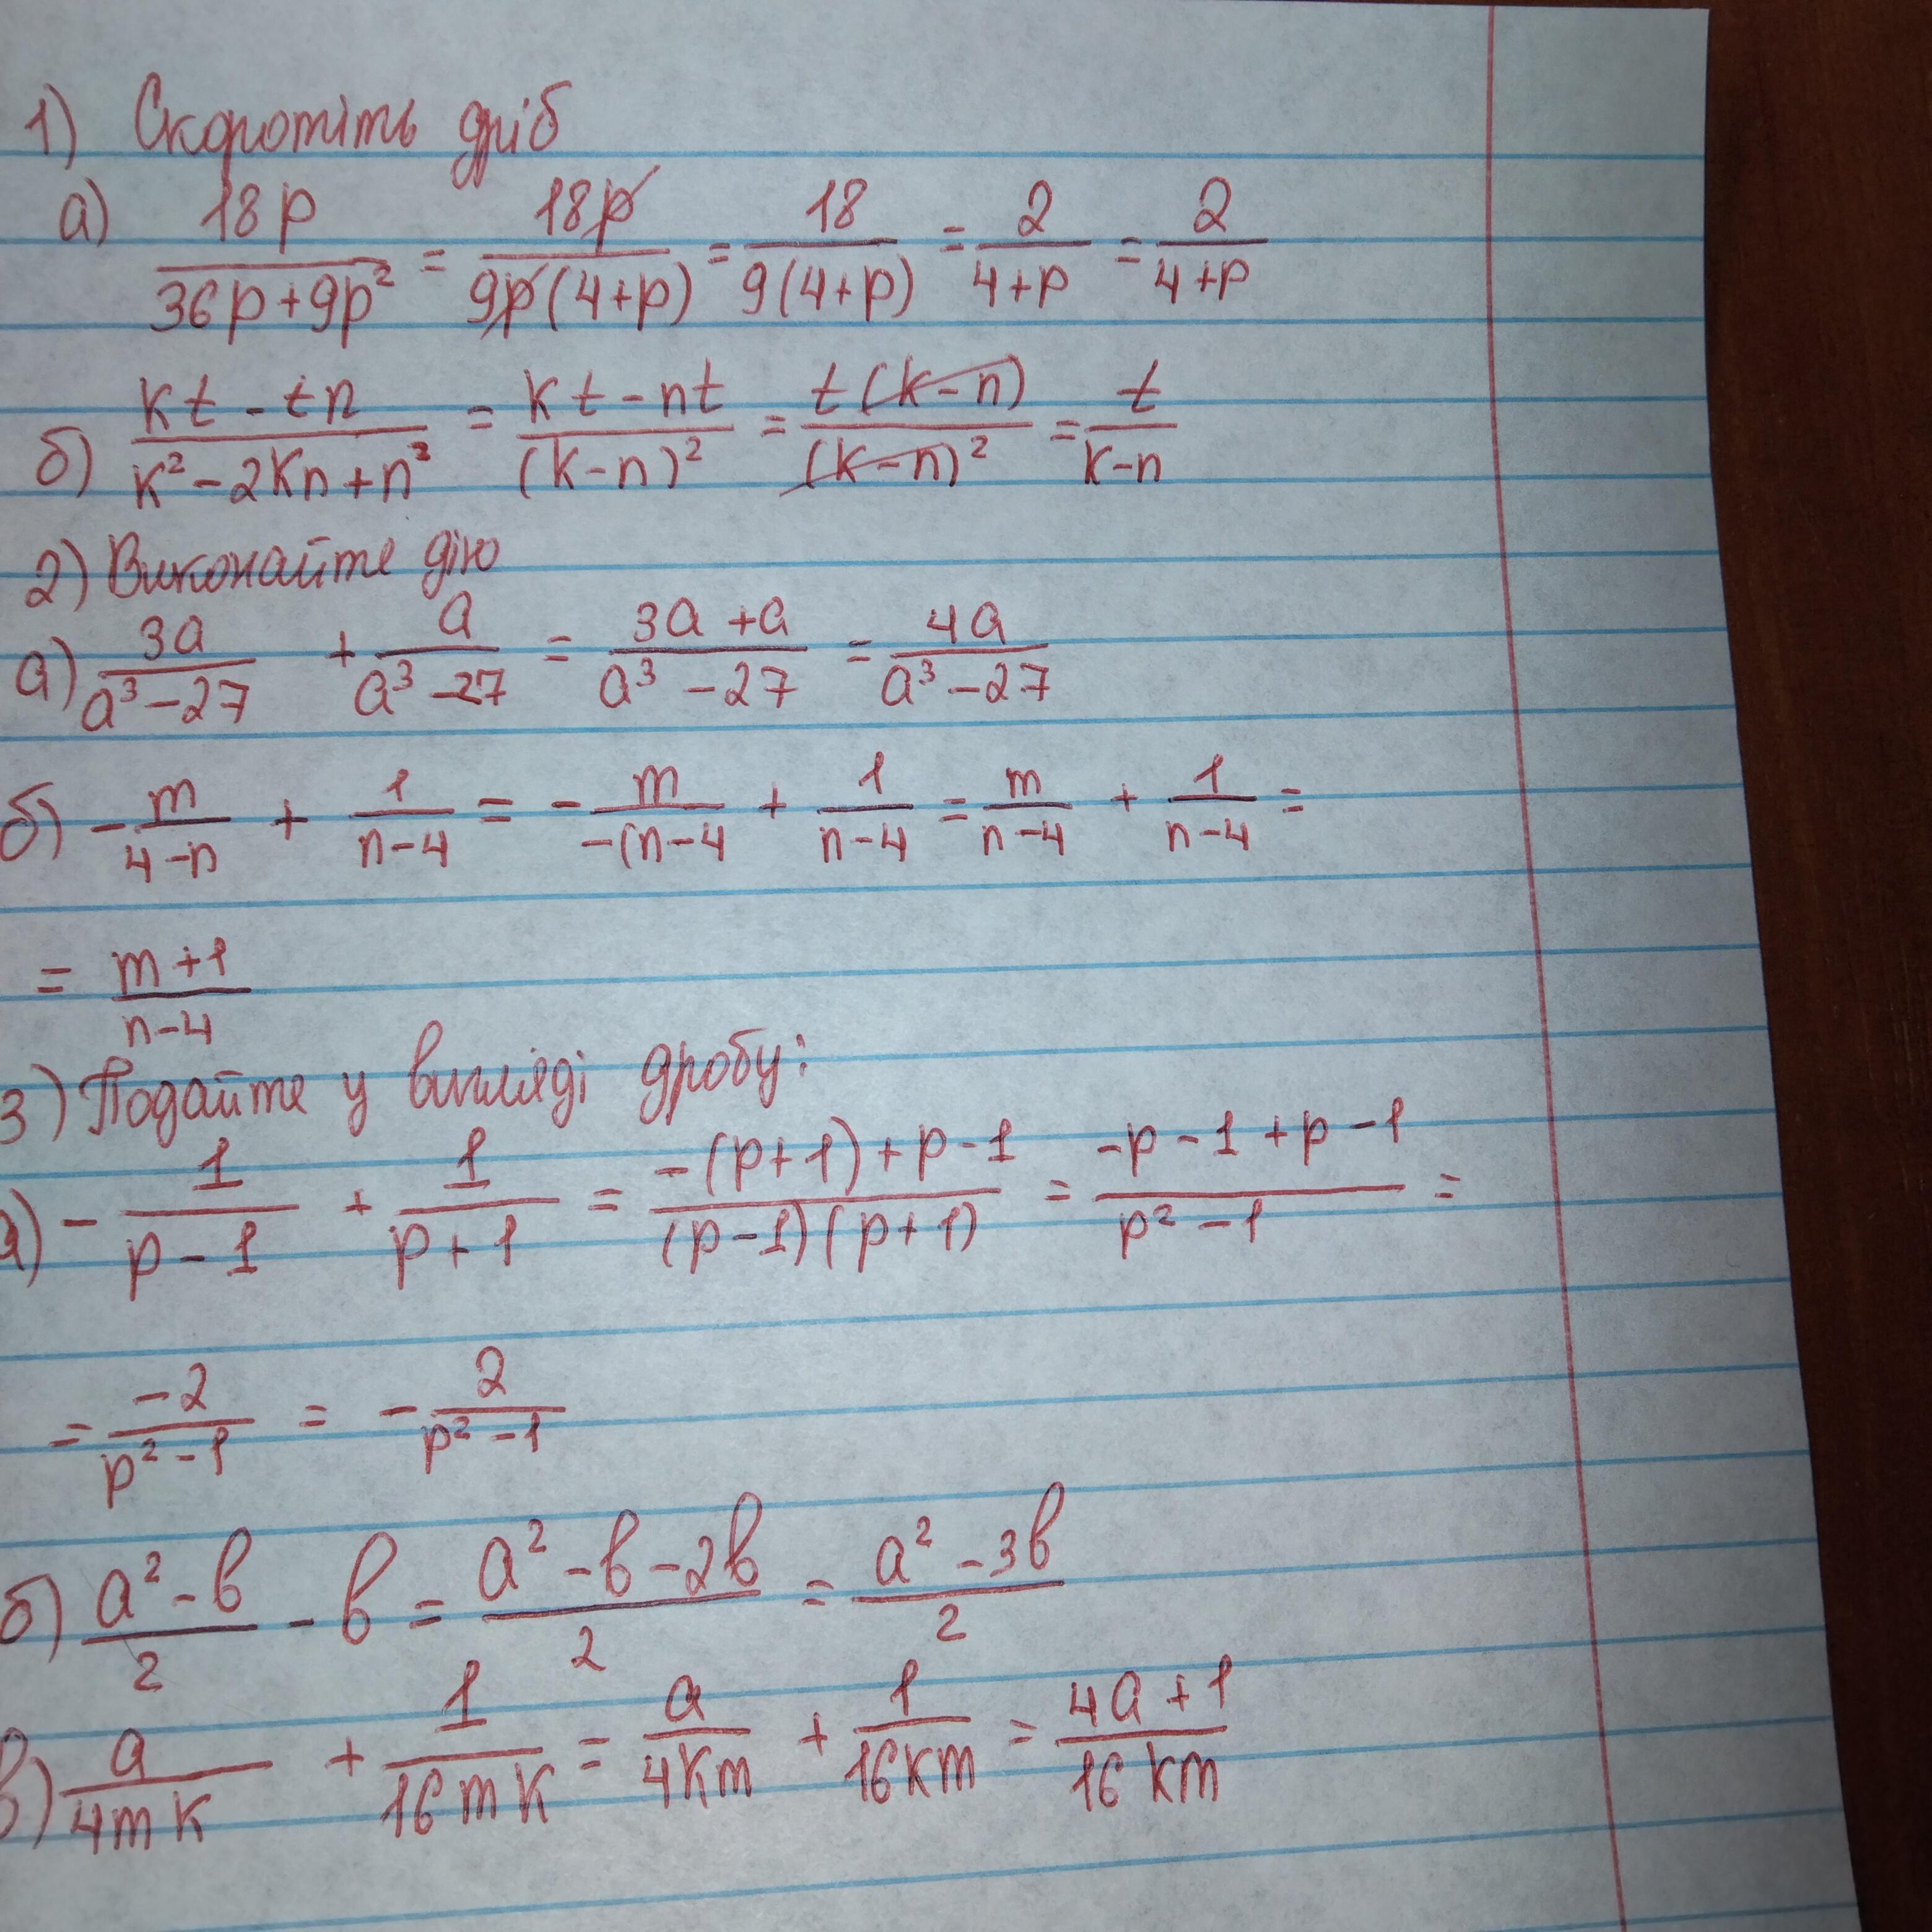 1) Скоротіть дріб
а) 18p/(36p+9p²) = 18p/(9p(4+p)) = 18/(9(4+p)) = 2/(4+p) = 2/(4+p)
б) (kt-tn)/(k²-2kn+n²) = (kt-nt)/(k-n)² = t(k-n)/(k-n)² = t/(k-n)
2) Виконайте дію
а) 3a/(a³-27) + a/(a³-27) = (3a+a)/(a³-27) = 4a/(a³-27)
б) - m/(4-n) + 1/(n-4) = - m/(-(n-4) + 1/(n-4) = m/(n-4) + 1/(n-4) =
= (m+1)/(n-4)
3) Подайте у вигляді дробу:
а) - 1/(p-1) + 1/(p+1) = (-(p+1)+p-1)/((p-1)(p+1)) = (-p-1+p-1)/(p²-1) =
= -2/(p²-1) = - 2/(p²-1)
б) (a²-b)/2 - b = (a²-b-2b)/2 = (a²-3b)/2
в) a/(4mk) + 1/(16mk) = a/(4km) + 1/(16km) = (4a+1)/(16km)